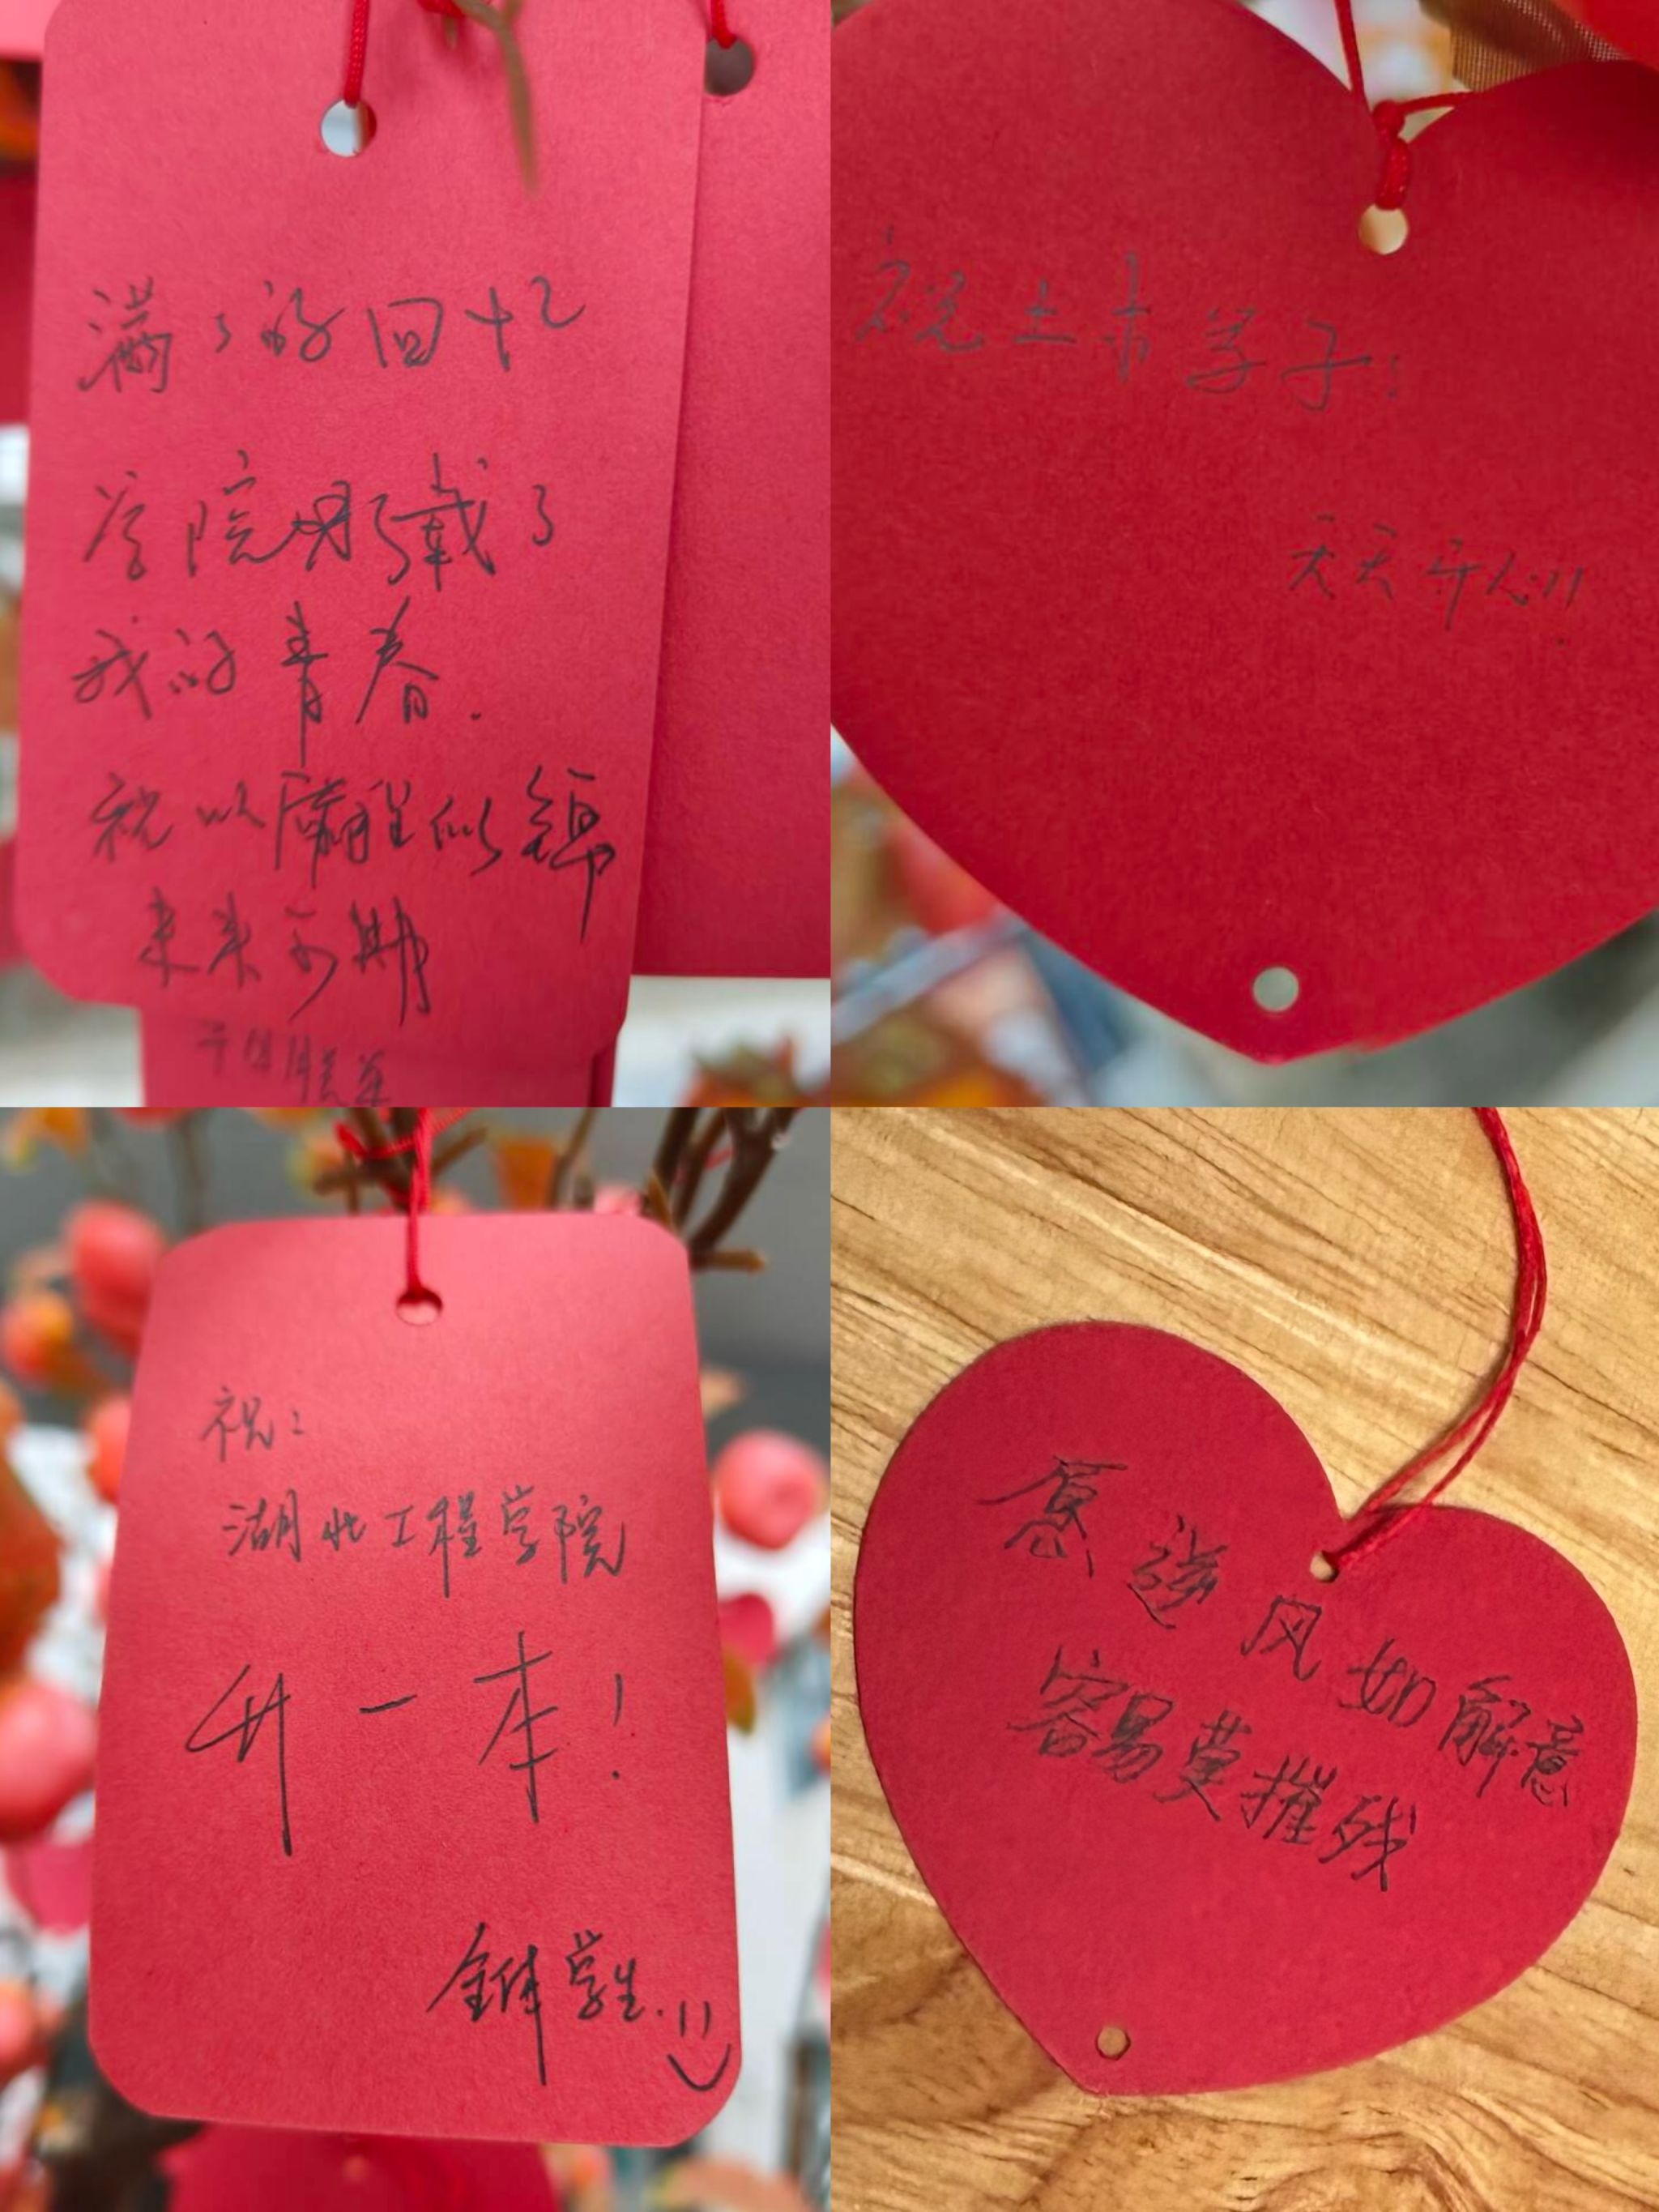 满满的回忆
学院承载了
我的青春.
祝以后前程似锦
未来可期
祝土木学子:
天天开心!!
祝:
湖北工程学院
升一本!
全体学生.
愿逢风如解意
容易莫摧残